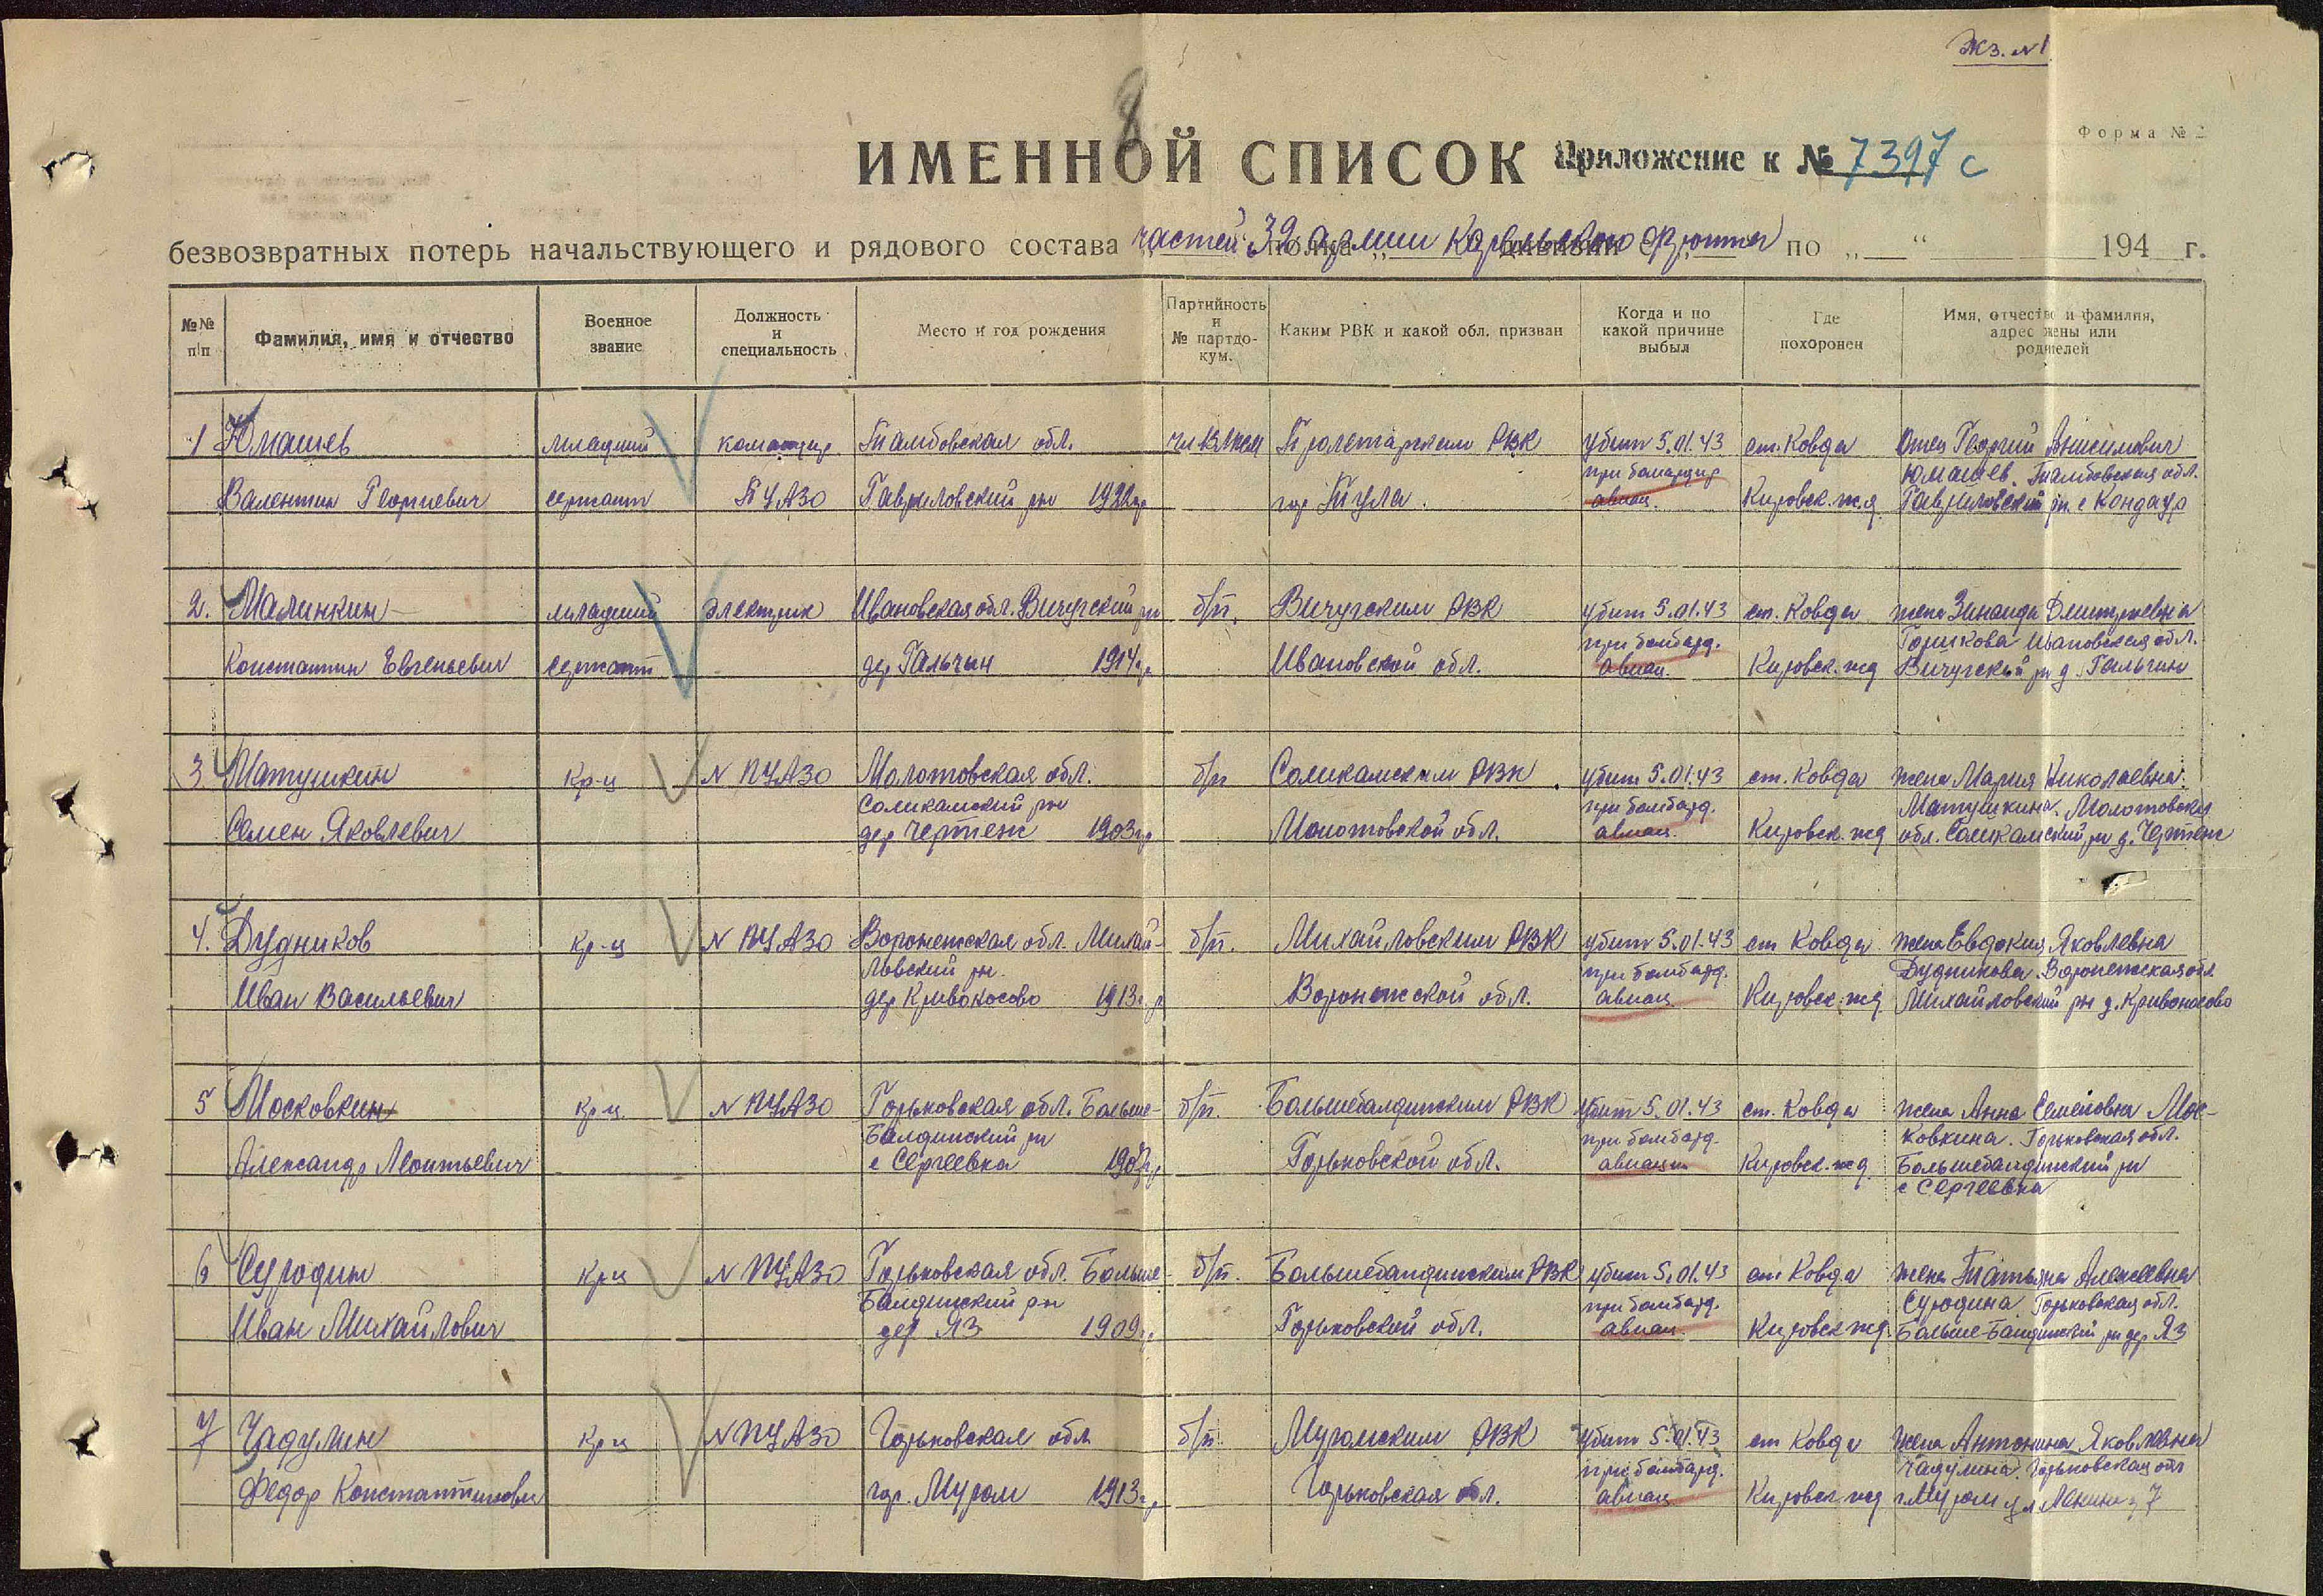 Экз. №1
8
Форма № 2
ИМЕННОЙ СПИСОК Приложение к № 7397 с
безвозвратных потерь начальствующего и рядового состава частей 32 армии Карельского фронта по „ “ 194 г.
№№ п/п
Фамилия, имя и отчество
Военное звание
Должность и специальность
Место и год рождения
Партийность и № партдокум.
Каким РВК и какой обл. призван
Когда и по какой причине выбыл
Где похоронен
Имя, отчество и фамилия, адрес жены или родителей
1 Юмашев младший командир Тамбовская обл. чл ВЛКСМ Пролетарским РВК убит 5.01.43 ст. Ковда Отец Георгий Анисимович
при бомбардир Юмашев. Тамбовская обл.
Валентин Георгиевич сержант ПУАЗО Гавриловский рн 1922гр гор Тула. авиац. Кировск. ж.д. Гавриловский рн. с Кондаур
2. Малинкин младший электрик Ивановская обл. Вичугский рн б/п. Вичугским РВК убит 5.01.43 ст. Ковда жена Зинаида Дмитриевна
при бомбард. Горшкова Ивановская обл.
Константин Евгеньевич сержант дер Гальчин 1914гр Ивановской обл. авиац. Кировск. жд Вичугский рн д. Гальчин
3. Матушкин Кр-ц N ПУАЗО Молотовская обл. б/п Соликамским РВК убит 5.01.43 ст. Ковда жена Мария Николаевна
Соликамский рн при бомбард. Матушкина. Молотовская
Семен Яковлевич дер Чертеж 1903гр Молотовской обл. авиац. Кировск жд обл. Соликамский рн д. Чертеж
4. Дудников Кр-ц N ПУАЗО Воронежская обл. Михай- б/п. Михайловским РВК убит 5.01.43 ст Ковда жена Евдокия Яковлевна
ловский рн. при бомбард. Дудникова Воронежская обл
Иван Васильевич дер Кривоносово 1913гр Воронежской обл. авиац Кировск. жд Михайловский рн д. Кривоносово
5 Московкин Кр-ц N ПУАЗО Горьковская обл. Больше- б/п. Большеболдинским РВК убит 5.01.43 ст. Ковда жена Анна Семеновна Мос-
Болдинский рн при бомбард. ковкина. Горьковская обл.
Александр Леонтьевич с Сергеевка Горьковской обл. авиации Кировск. жд Большеболдинский рн
с Сергеевка
6 Суродин Кр-ц N ПУАЗО Горьковская обл. Больше- б/п. Большеболдинским РВК убит 5.01.43 ст Ковда жена Татьяна Алексеевна
Болдинский рн при бомбард. Суродина Горьковская обл.
Иван Михайлович дер Яз 1909гр Горьковской обл. авиац. Кировск жд Больше-Болдинский рн дер Яз
7 Чадулин Кр-ц N ПУАЗО Горьковская обл б/п. Муромским РВК убит 5.01.43 ст Ковда жена Антонина Яковлевна
при бомбард. Чадулина. Горьковская обл
Федор Константинович гор. Муром 1913гр Горьковская обл. авиац Кировск жд г. Муром ул Ленина 7